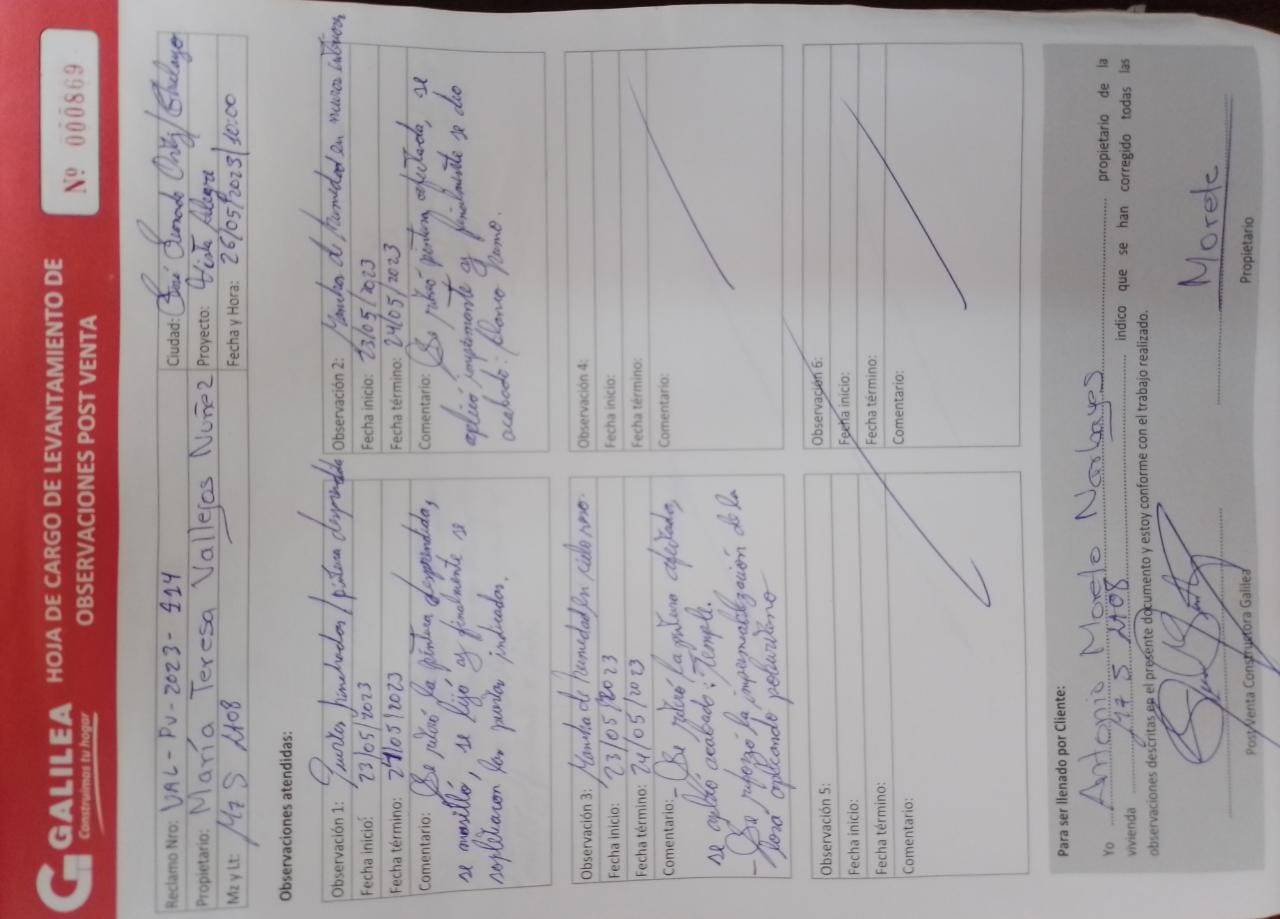 GALILEA
Construimos tu hogar
HOJA DE CARGO DE LEVANTAMIENTO DE
OBSERVACIONES POST VENTA
Nº 000869
Reclamo Nro: VAL - PV - 2023 - 914
Ciudad: José Leonardo Ortiz / Chiclayo
Propietario: María Teresa Vallejos Nuñez
Proyecto: Vista Alegre
Mz y Lt: Mz S Lt 08
Fecha y Hora: 26/05/2023 / 10:00
Observaciones atendidas:
Observación 1: Puertas hinchadas / pintura desprendida
Fecha inicio: 23/05/2023
Fecha término: 24/05/2023
Comentario: Se retiró la pintura desprendida,
se masilló, se lijó y finalmente se
sopletearon los puntos indicados.
Observación 2: Mancha de humedad en muros interiores
Fecha inicio: 23/05/2023
Fecha término: 24/05/2023
Comentario: Se retiró pintura afectada, se
aplicó imprimante y finalmente se dio
acabado: blanco humo.
Observación 3: Mancha de humedad en cielo raso.
Fecha inicio: 23/05/2023
Fecha término: 24/05/2023
Comentario: - Se retiró la pintura afectada,
se aplicó acabado: Temple.
- Se reforzó la impermeabilización de la
losa aplicando poliuretano
Observación 4:
Fecha inicio:
Fecha término:
Comentario:
Observación 5:
Fecha inicio:
Fecha término:
Comentario:
Observación 6:
Fecha inicio:
Fecha término:
Comentario:
Para ser llenado por Cliente:
Yo Antonio Moreto Narbayes propietario de la
vivienda Mz S Lt 08 indico que se han corregido todas las
observaciones descritas en el presente documento y estoy conforme con el trabajo realizado.
Morete
Post Venta Constructora Galilea
Propietario